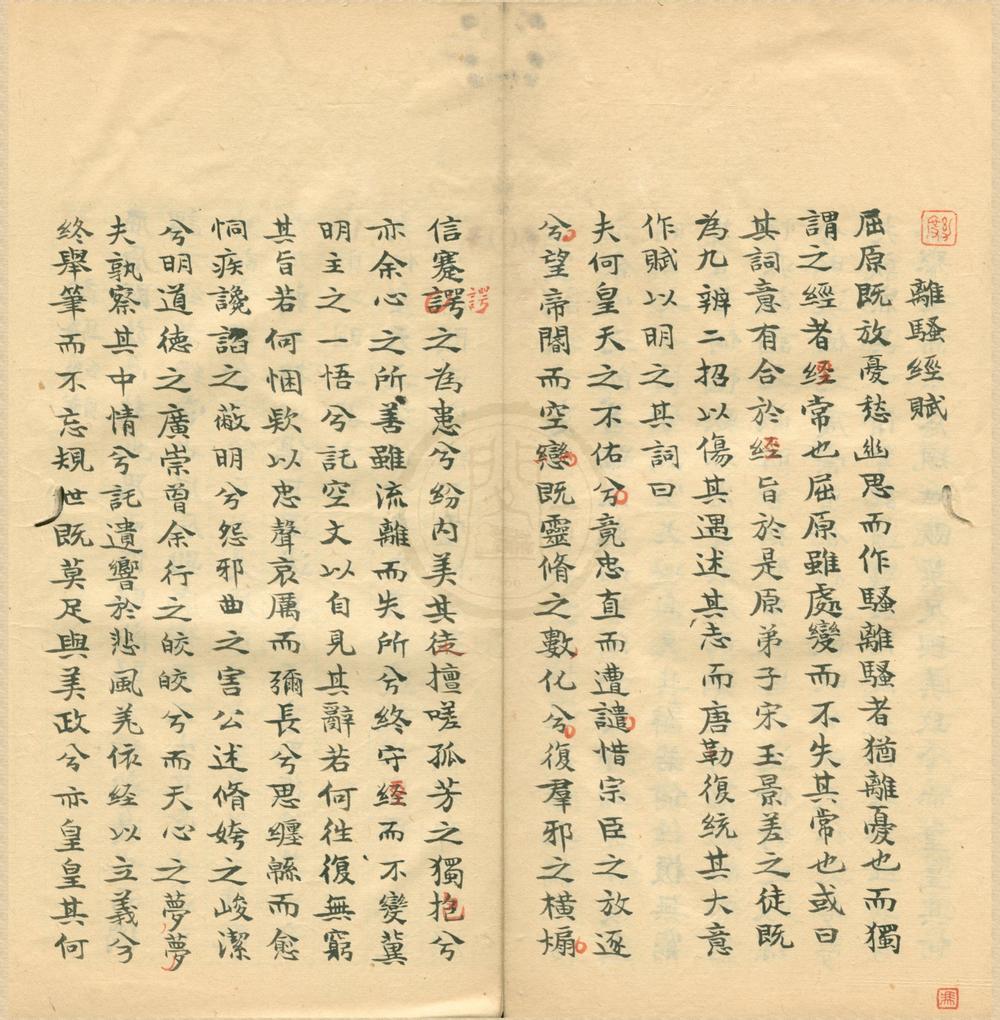 離騷經賦
屈原既放憂愁幽思而作騷離騷者猶離憂也而獨
謂之經者經常也屈原雖處變而不失其常也或曰
其詞意有合於經旨於是原弟子宋玉景差之徒既
為九辨二招以傷其遇述其志而唐勒復統其大意
作賦以明之其詞曰
夫何皇天之不佑兮竟忠直而遭譴惜宗臣之放逐
兮望帝閽而空戀既靈脩之數化兮復羣邪之橫煽
信蹇諤之為患兮紛內美其徒擅嗟孤芳之獨抱兮
諤
亦余心之所善雖流離而失所兮終守經而不變冀
明主之一悟兮託空文以自見其辭若何往復無窮
其旨若何悃欵以忠聲哀厲而彌長兮思纏緜而愈
恫疾讒諂之蔽明兮怨邪曲之害公述脩姱之峻潔
兮明道徳之廣崇曾余行之皎皎兮而天心之夢夢
夫孰察其中情兮託遺響於悲風羌依經以立義兮
終舉筆而不忘規世既莫足與美政兮亦皇皇其何
馮